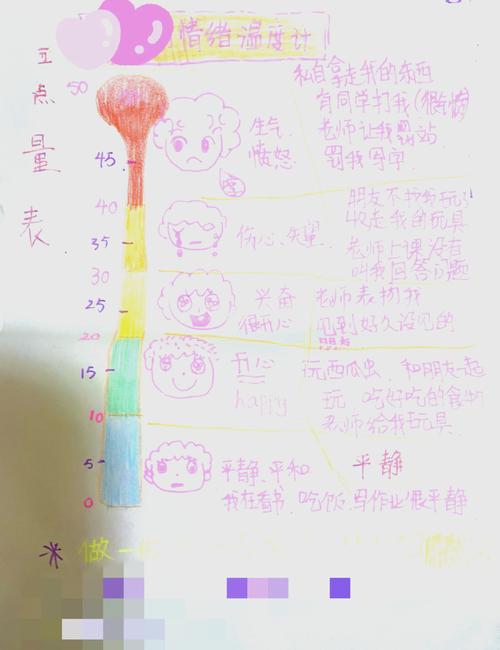 情绪温度计
五点量表
50
45
40
35
30
25
20
15
10
5
0
生气
愤怒
私自拿走我的东西
有同学打我(很愤
老师让我罚站
罚我写字
伤心、失望
朋友不
收走我的玩具
老师上课没有
叫我回答问题
兴奋
很开心
老师表扬我
见到好久没见的
朋友
开心
happy
玩西瓜虫、和朋友一起
玩 吃好吃的食物
老师给我玩具
平静、平和
平静
我在看书、吃饭、写作业很平静
做一